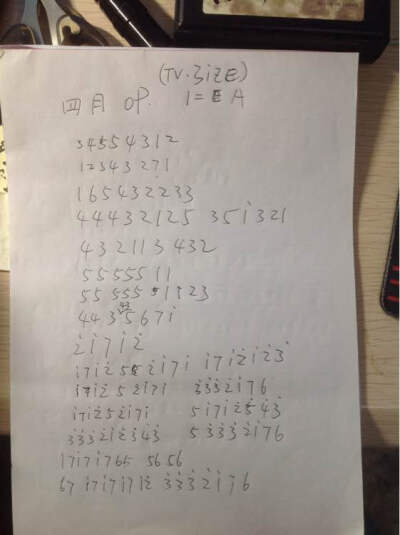 (TV.SiZE)
四月 OP. 1=E A
34554312
12343271
165432233
44432125 35i321
432113432
5555511
55 555 51123
44 35671̇
2̇i7i2̇
i7i2̇55 2̇i7i i7i2̇i2̇3̇
i7i2̇52̇i7i 3̇3̇3̇2̇i76
i7i2̇52̇i7i 5i7i2̇54̇3̇
3̇3̇3̇2̇i2̇3̇4̇3̇ 53̇3̇3̇2̇i76
i7i7i765 5656
67 i7i7i7i2̇ 3̇3̇3̇2̇i76